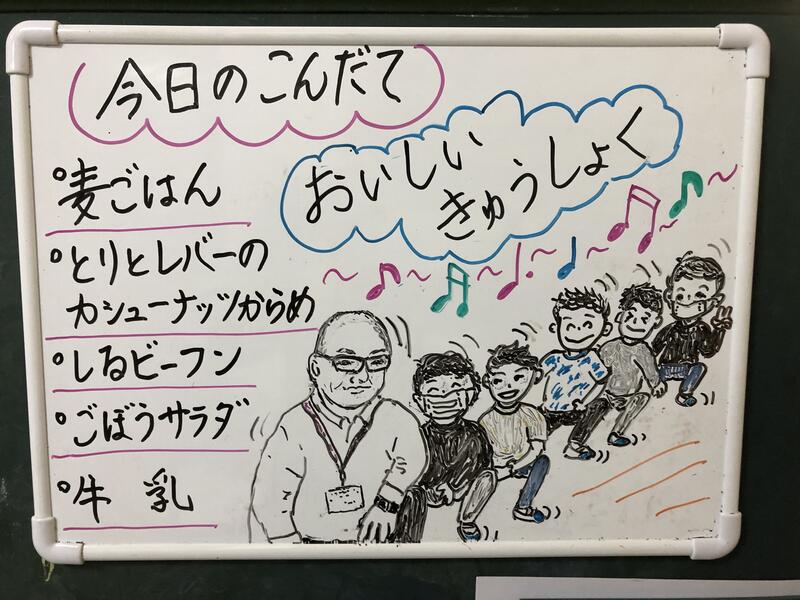 今日のこんだて
おいしい
きゅうしょく
°麦ごはん
°とりとレバーの
カシューナッツからめ
°しるビーフン
°ごぼうサラダ
°牛 乳